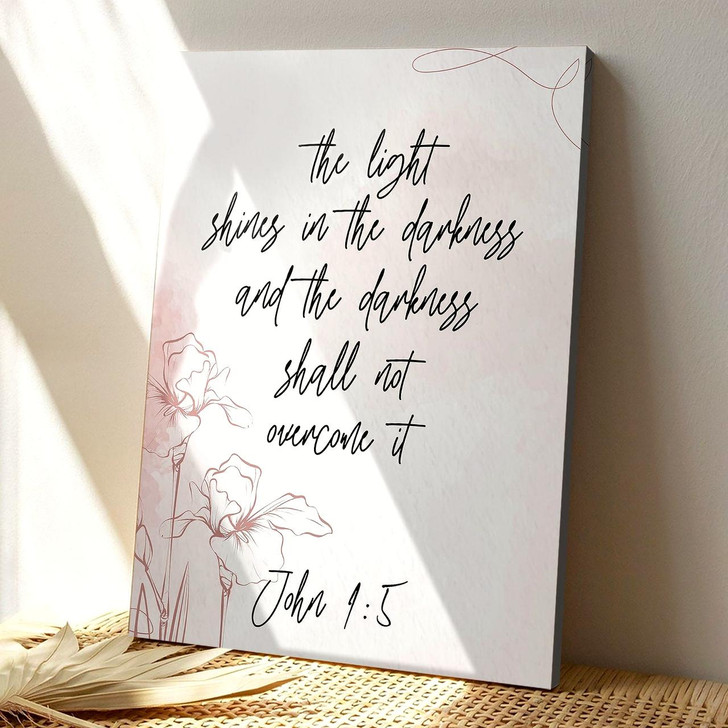 the light
shines in the darkness
and the darkness
shall not
overcome it
John 1:5